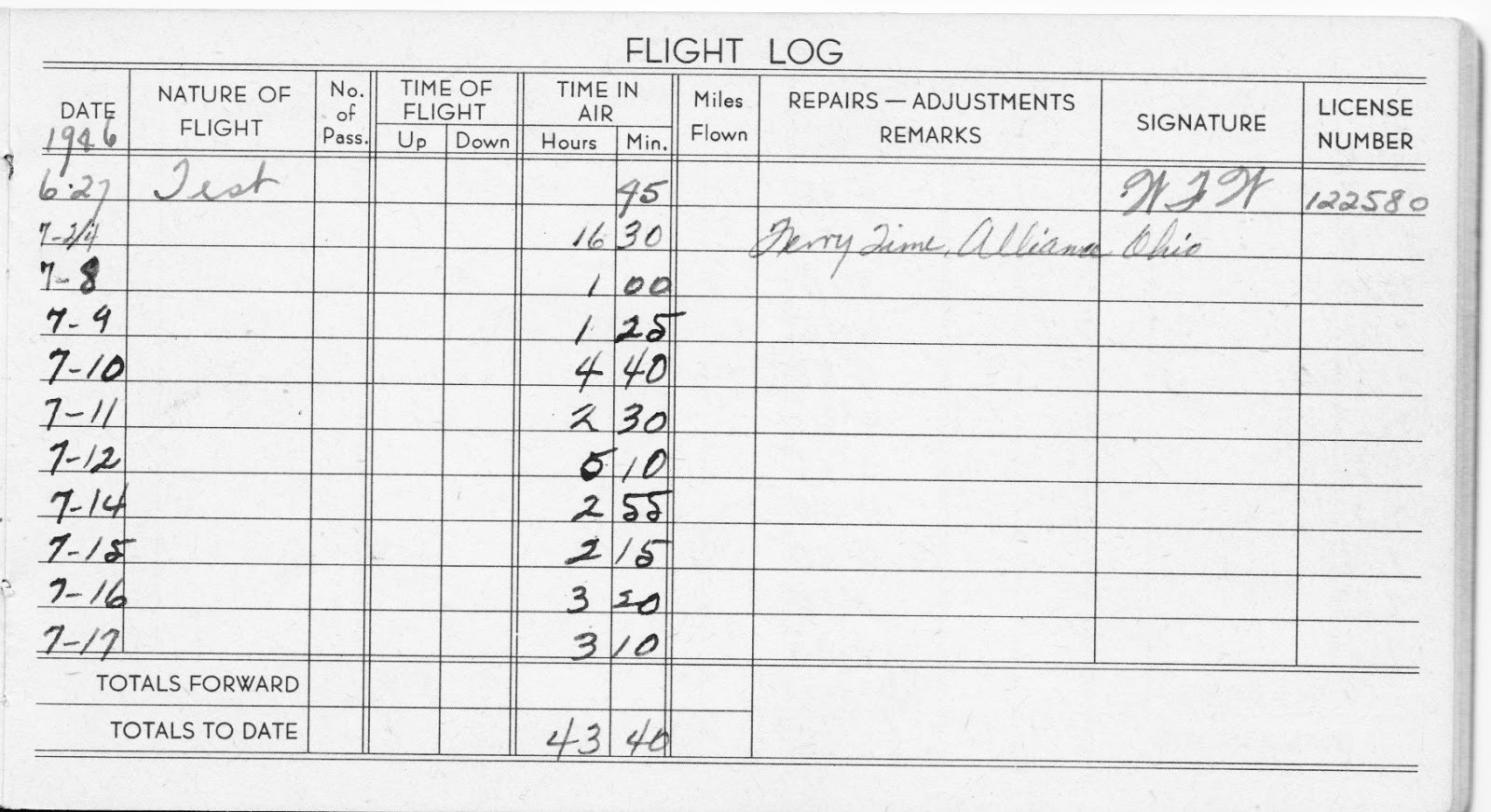 FLIGHT LOG
DATE 1946 NATURE OF FLIGHT No. of Pass. TIME OF FLIGHT Up Down TIME IN AIR Hours Min. Miles Flown REPAIRS — ADJUSTMENTS REMARKS SIGNATURE LICENSE NUMBER
6-27 Test 45 WFW 122580
7-2/4 16 30 Ferry Time, Alliance Ohio
7-8 1 00
7-9 1 25
7-10 4 40
7-11 2 30
7-12 5 10
7-14 2 55
7-15 2 15
7-16 3 20
7-17 3 10
TOTALS FORWARD
TOTALS TO DATE 43 40